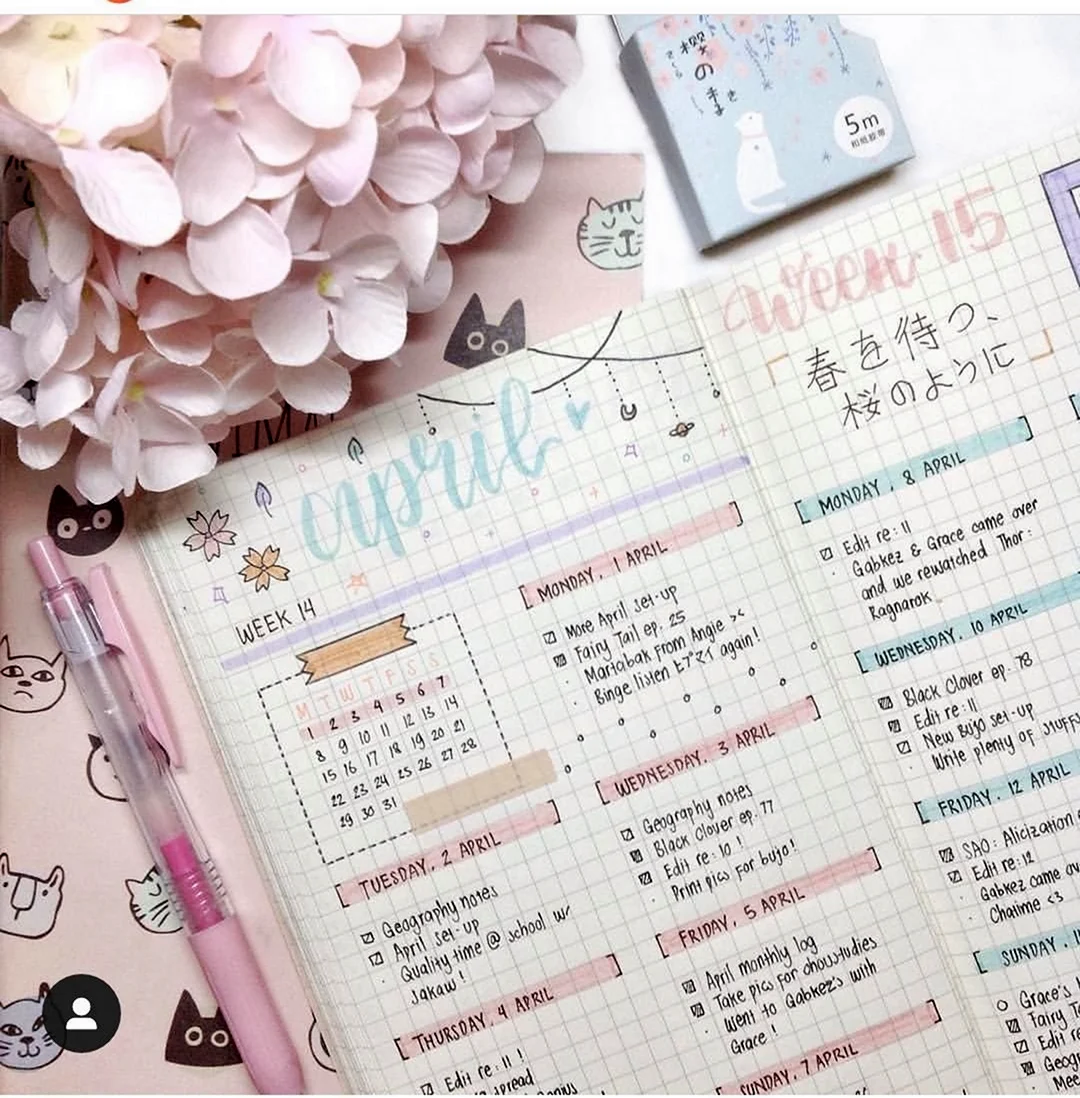 桜のまま
さくら
き
5m
和紙胶带
april
WEEK 14
M T W T F S S
1 2 3 4 5 6 7
8 9 10 11 12 13 14
15 16 17 18 19 20 21
22 23 24 25 26 27 28
29 30 31
TUESDAY, 2 APRIL
Geography notes
April set-up
Quality time @ school w/
Jakaw!
THURSDAY, 4 APRIL
Edit re: 11 !
spread
MONDAY, 1 APRIL
More April set-up
Fairy Tail ep. 25
Martabak from Angie ><
Binge listen ヒプマイ again!
WEDNESDAY, 3 APRIL
Geography notes
Black Clover ep. 77
Edit re: 10 !
Print pics for bujo!
FRIDAY, 5 APRIL
April monthly log
Take pics for chowstudies
Went to Gabkez's with
Grace !
SUNDAY, 7 APRIL
Week 15
春を待つ、
桜のように
MONDAY, 8 APRIL
Edit re: 11
Gabkez & Grace came over
and we rewatched Thor:
Ragnarok
WEDNESDAY, 10 APRIL
Black Clover ep. 78
Edit re: 11
New Bujo set-up
Write plenty of stuffs
FRIDAY, 12 APRIL
SAO: Alicization
Edit re: 12
Gabkez came
Chatime <3
SUNDAY,
Grace's
Fairy
Edit